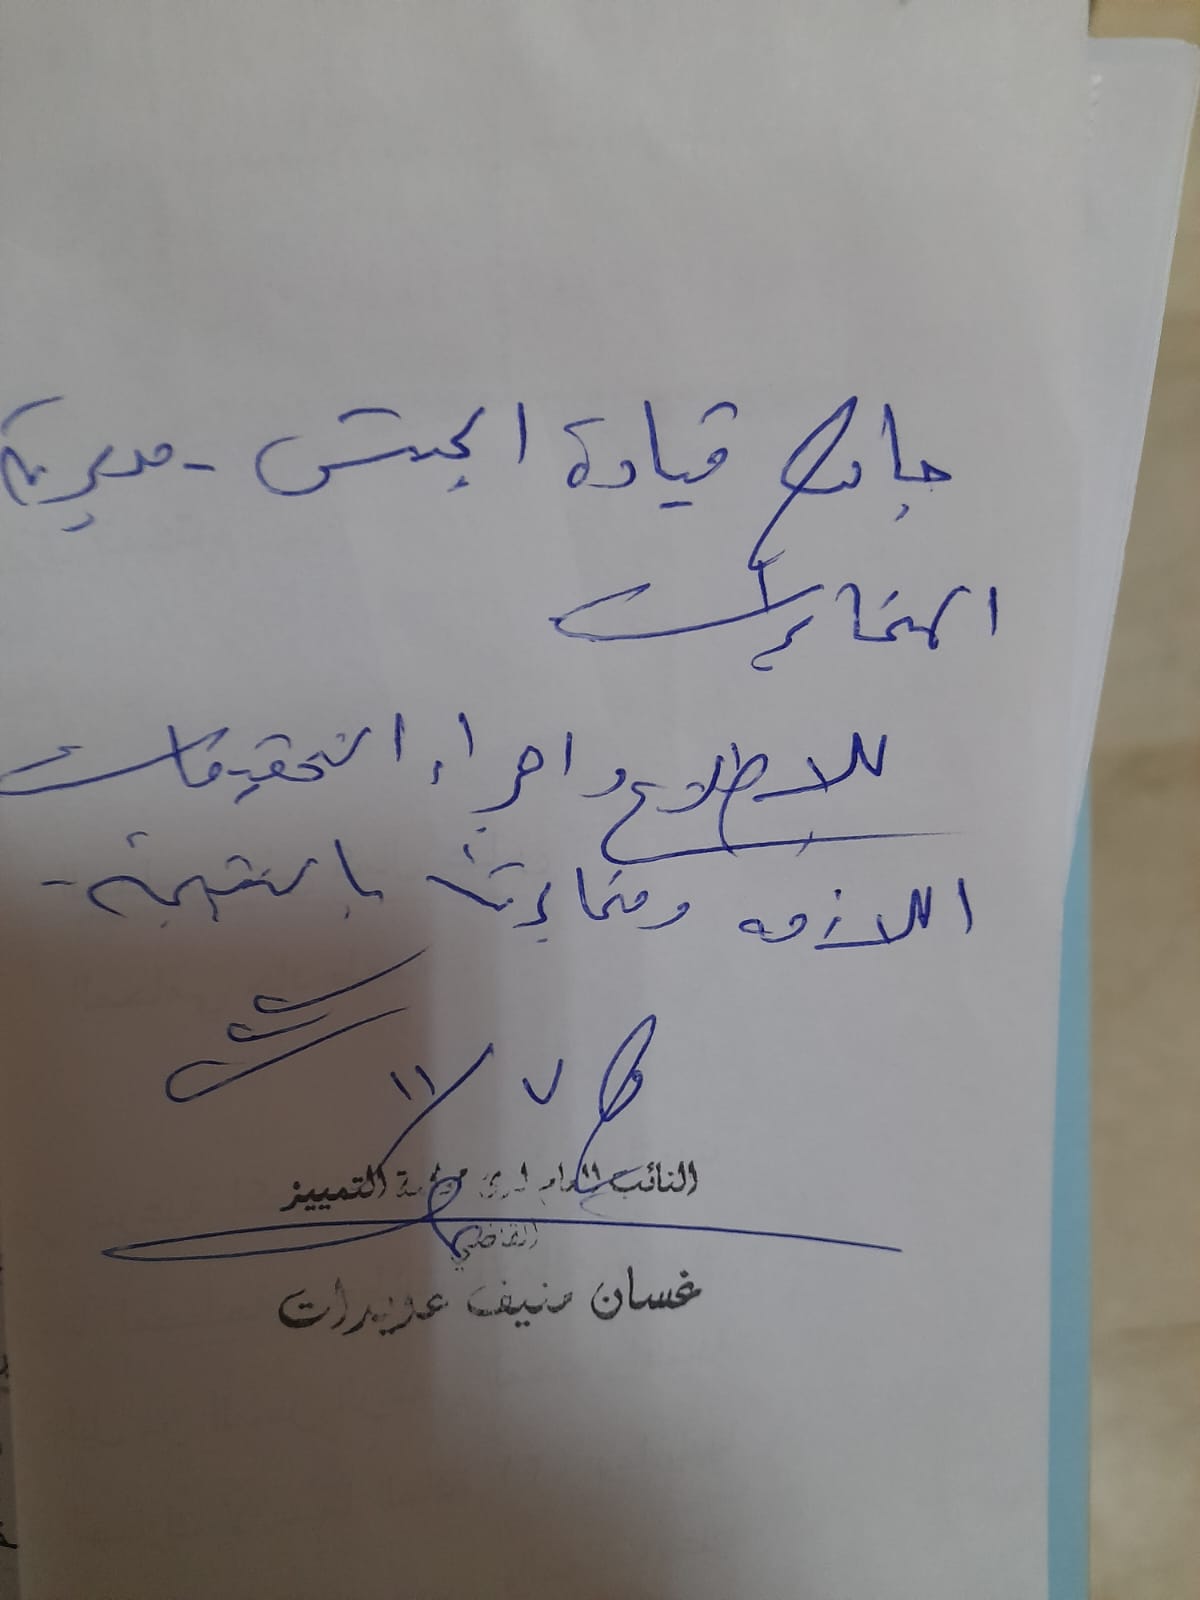 جانب قيادة الجيش - مديرية
المخابرات
للاطلاع واجراء التحقيقات
اللازمه ومخابرتنا بالنتيجة -
١١/٧
النائب العام لدى محكمة التمييز
القاضي
غسان منيف عويدات